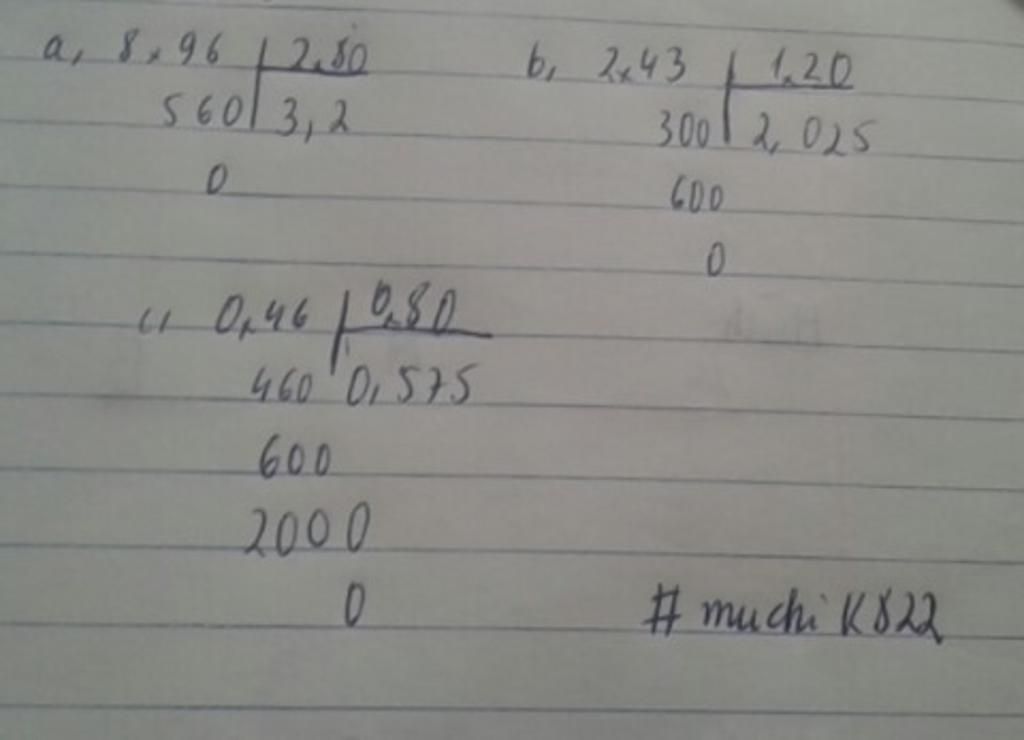 a, 8,96 | 2,80
560 | 3,2
0
b, 2,43 | 1,20
300 | 2,025
600
0
c, 0,46 | 0,80
460 | 0,575
600
2000
0
# muchi K822